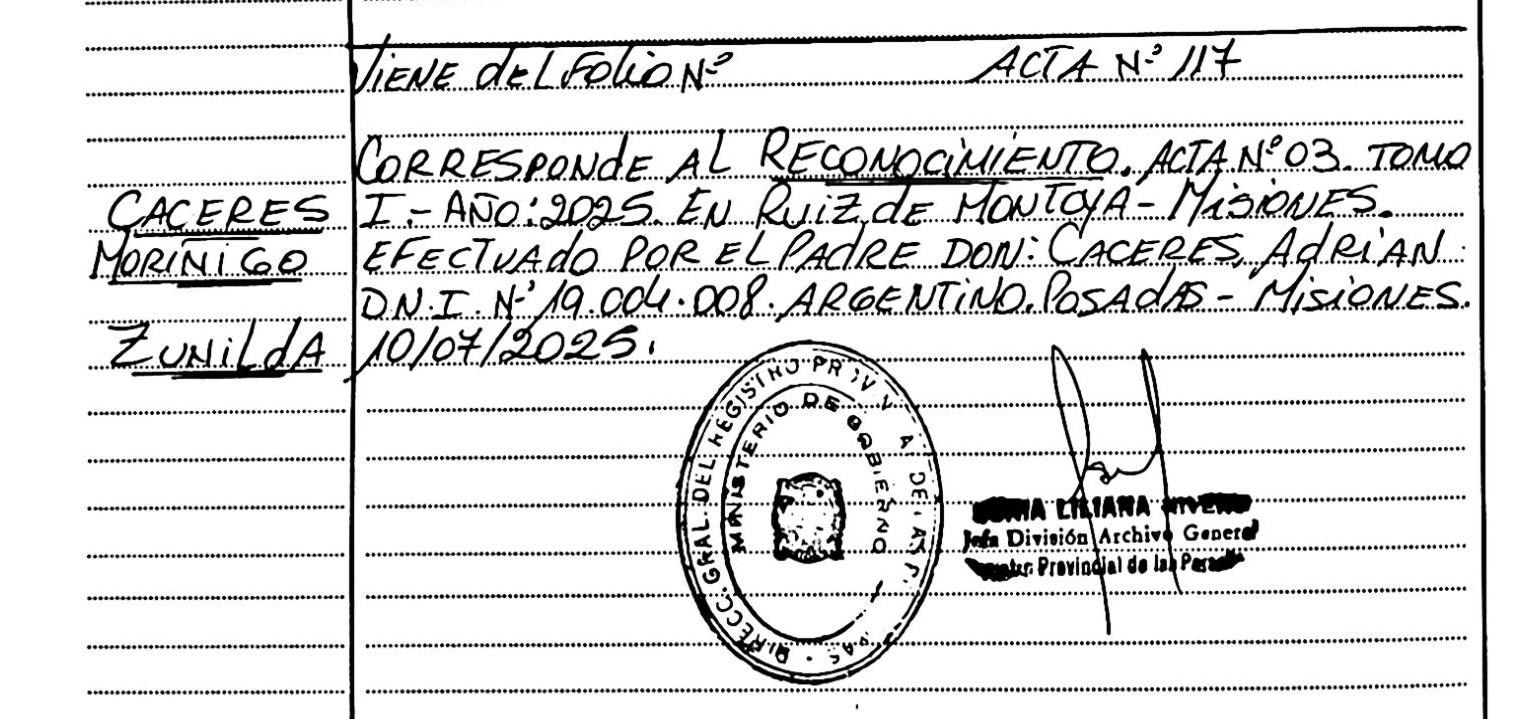 VIENE dEL FOLIO Nº
ACTA Nº 117
CORRESPONdE AL RECONOCIMIENTO. ACTA Nº 03. TOMO
I.- AÑO: 2025. EN RUIZ dE MONTOYA - MISIONES.
EFECTUAdO POR EL PAdRE DON: CACERES, AdRIAN.
D.N.I. Nº 19.004.008. ARGENTINO. POSAdAS - MISIONES.
10/07/2025.
CACERES
MORIÑIGO
ZUNILdA
DIRECC. GRAL. DEL REGISTRO PROV DE LAS
MINISTERIO DE GOBIERNO
LILIANA
Jefa División Archivo General
Provincial de las